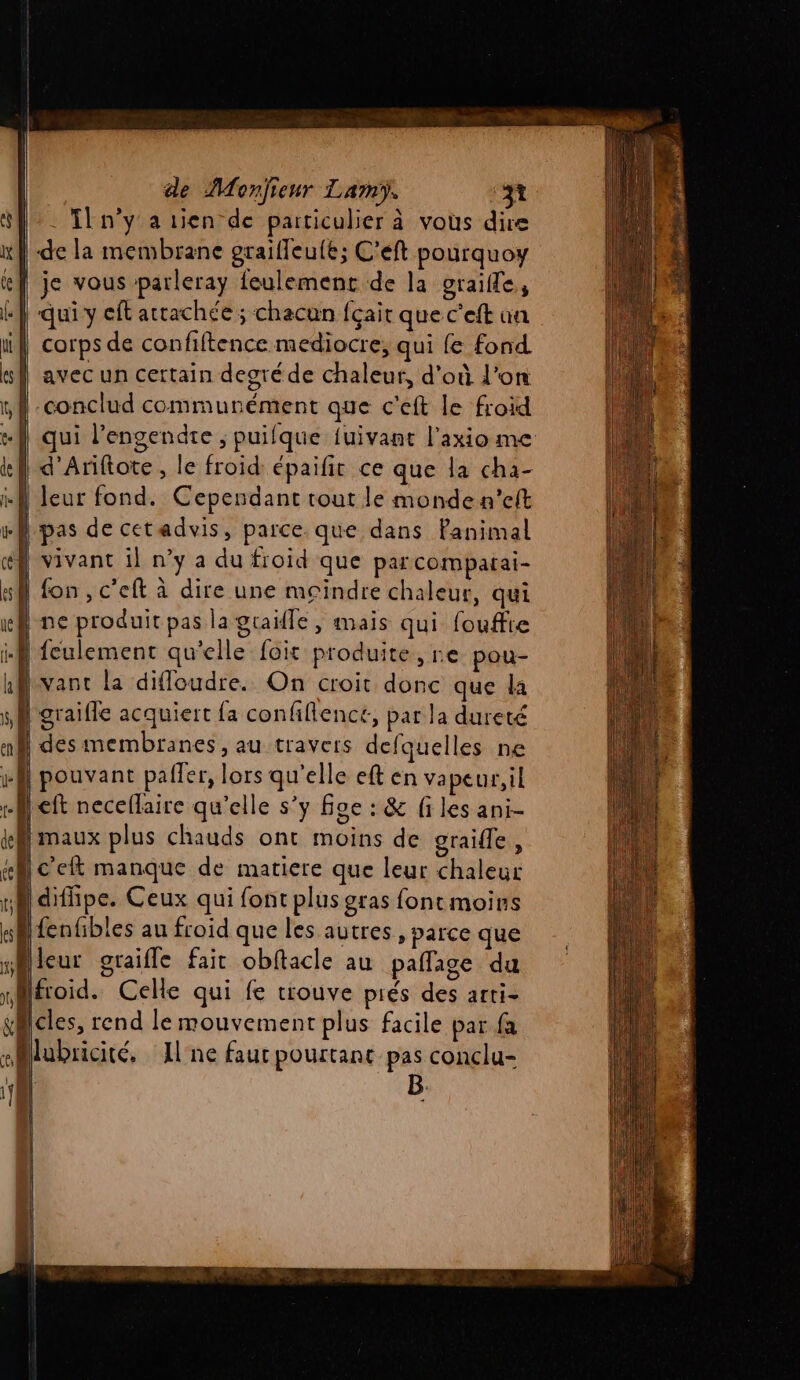 de Monſieur Lamy. 31
Il n'y a rien de particulier à vous dire
de la membrane graiſſeuſe; C'eſt pourquoy
je vous parleray ſeulement de la graiſſe,
qui y eſt attachée; chacun ſçait que c'eſt un
corps de conſiſtence mediocre, qui ſe fond
avec un certain degré de chaleur, d'où l'on
conclud communément que c'eſt le froid
qui l'engendre; puiſque ſuivant l'axiome
d'Ariſtote, le froid épaiſit ce que la cha-
leur fond. Cependant tout le monde n'eſt
pas de cet advis, parce que dans l'animal
vivant il n'y a du froid que par comparai-
ſon, c'eſt à dire une moindre chaleur, qui
ne produit pas la graiſſe, mais qui ſouffre
ſeulement qu'elle ſoit produite, ne pou-
vant la diſſoudre. On croit donc que la
graiſſe acquiert ſa conſiſtence, par la dureté
des membranes, au travers deſquelles ne
pouvant paſſer, lors qu'elle eſt en vapeur, il
eſt neceſſaire qu'elle s'y fige: & ſi les ani-
maux plus chauds ont moins de graiſſe,
c'eſt manque de matiere que leur chaleur
diſſipe. Ceux qui ſont plus gras ſont moins
ſenſibles au froid que les autres, parce que
leur graiſſe fait obſtacle au paſſage du
froid. Celle qui ſe trouve prés des arti-
cles, rend le mouvement plus facile par ſa
lubricité. Il ne faut pourtant pas conclu-
B